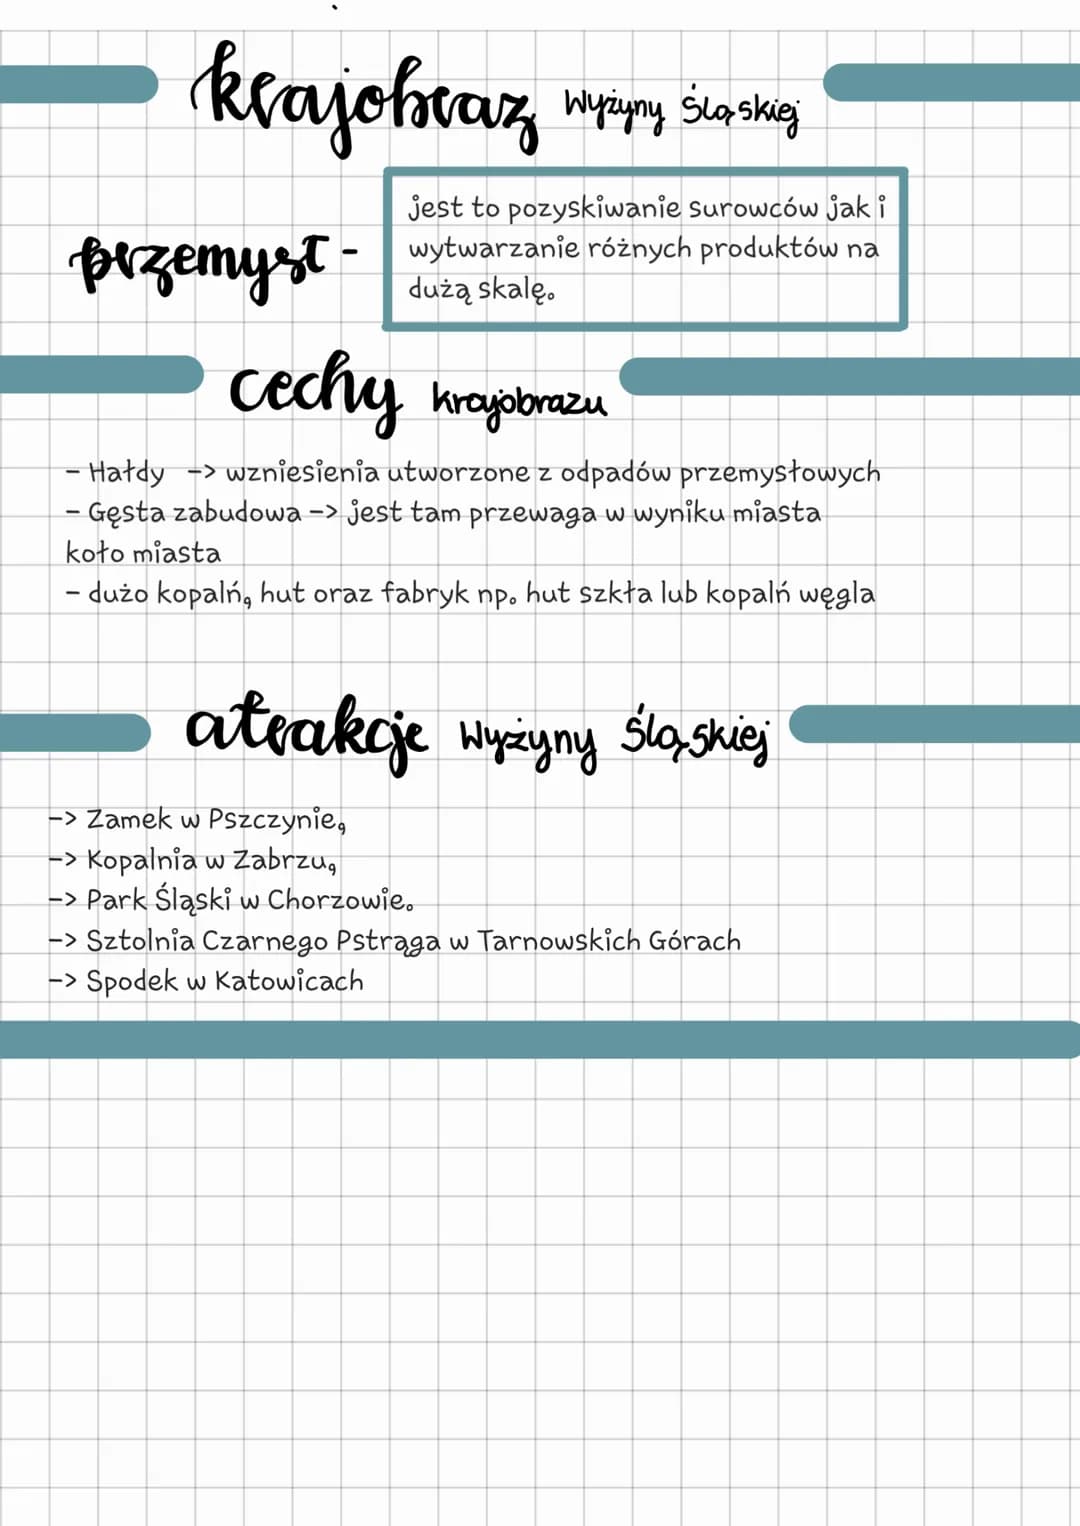 krajobraz Wyżyny Śląskiej
jest to pozyskiwanie surowców jak i
przemysł - wytwarzanie różnych produktów na
dużą skalę.
cechy krajobrazu
- Hałdy -> wzniesienia utworzone z odpadów przemysłowych
- Gęsta zabudowa -> jest tam przewaga w wyniku miasta
koło miasta
- dużo kopalń, hut oraz fabryk np. hut szkła lub kopalń węgla
atrakcje Wyżyny Śląskiej
-> Zamek w Pszczynie,
-> Kopalnia w Zabrzu,
-> Park Śląski w Chorzowie.
-> Sztolnia Czarnego Pstrąga w Tarnowskich Górach
-> Spodek w Katowicach